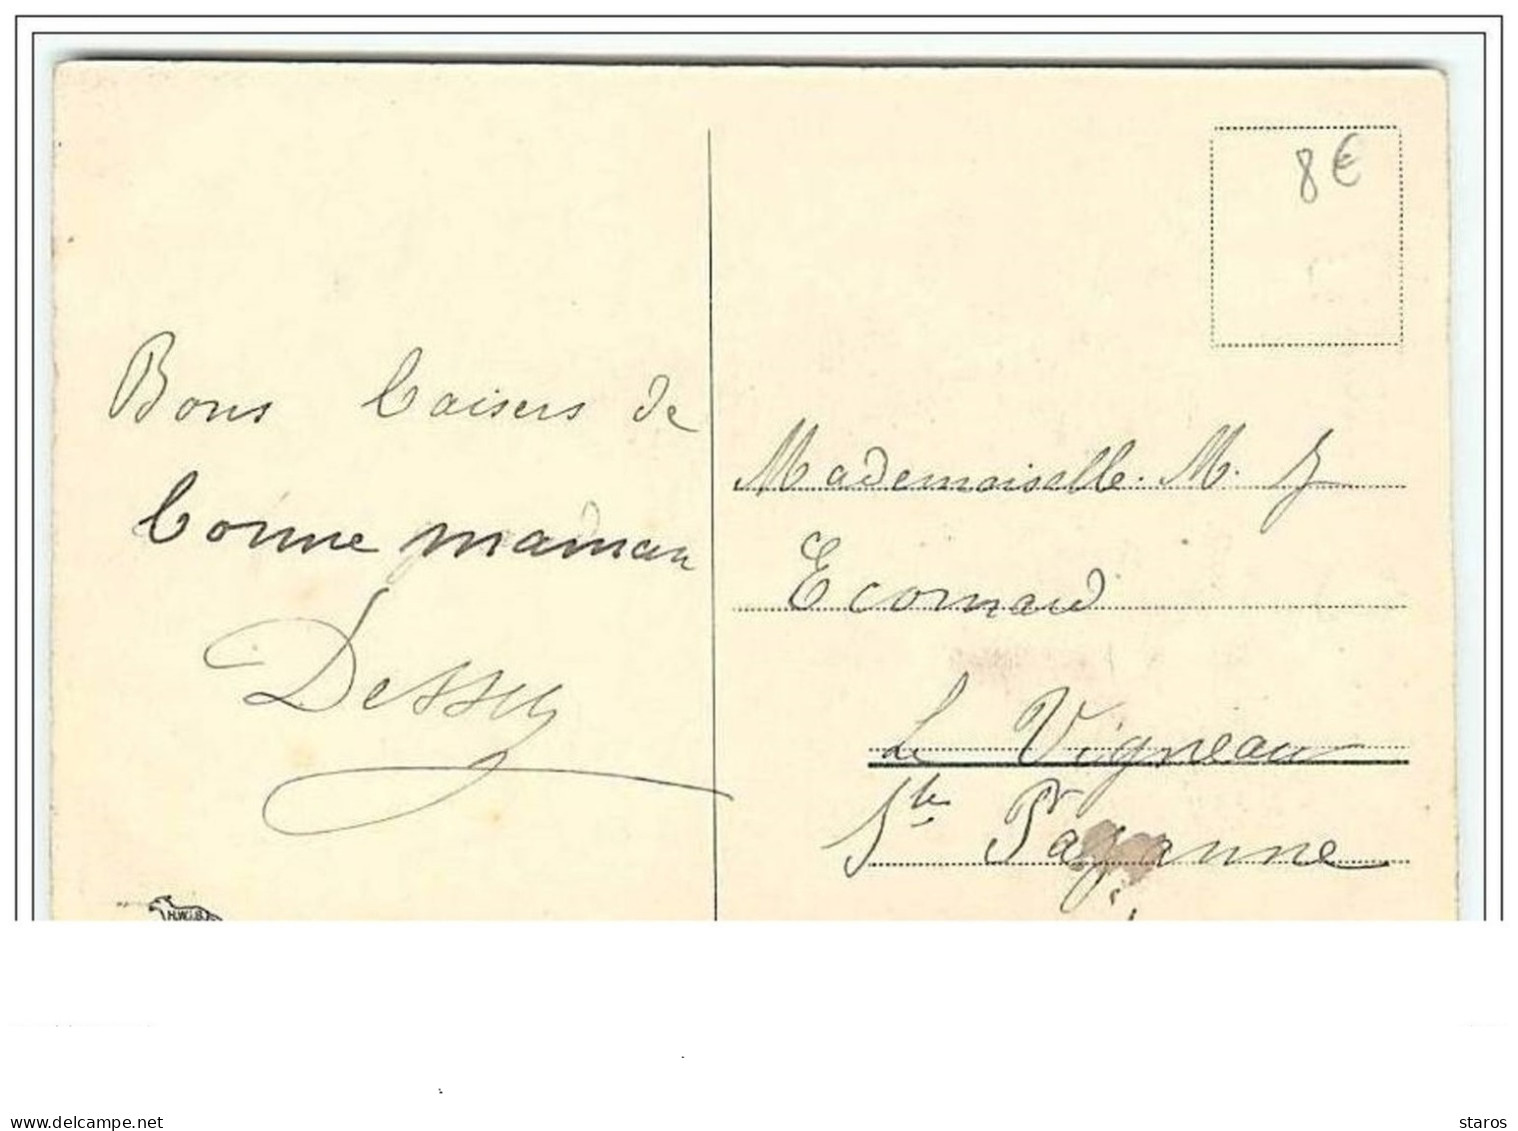 8€
Bons baisers de
bonne maman
Dessey
Mademoiselle. M. J
Ecomard
Le Vigneau
Ste Pazanne
H.W.i.B.
www.delcampe.net
staros